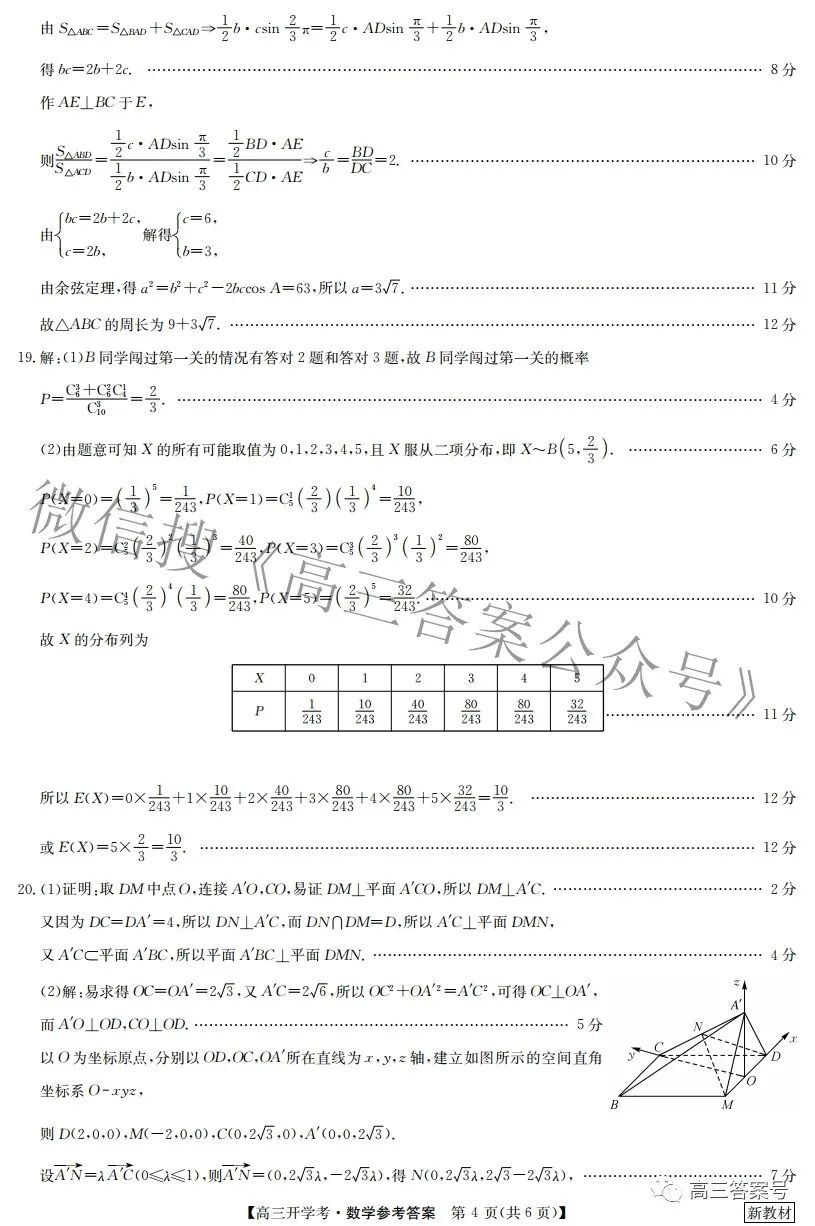 由 S△ABC=S△BAD+S△CAD⇒1/2 b·csin 2/3 π=1/2 c·ADsin π/3+1/2 b·ADsin π/3,
得 bc=2b+2c. …… 8 分
作 AE⊥BC 于 E,
则 S△ABD/S△ACD=(1/2 c·ADsin π/3)/(1/2 b·ADsin π/3)=(1/2 BD·AE)/(1/2 CD·AE)⇒c/b=BD/DC=2. …… 10 分
由{bc=2b+2c, c=2b, 解得{c=6, b=3,
由余弦定理,得 a²=b²+c²−2bccos A=63,所以 a=3√7. …… 11 分
故△ABC 的周长为 9+3√7. …… 12 分
19. 解:(1)B 同学闯过第一关的情况有答对 2 题和答对 3 题,故 B 同学闯过第一关的概率
P=(C₆³+C₆²C₄¹)/C₁₀³=2/3. …… 4 分
(2)由题意可知 X 的所有可能取值为 0,1,2,3,4,5,且 X 服从二项分布,即 X~B(5,2/3). …… 6 分
P(X=0)=(1/3)⁵=1/243,P(X=1)=C₅¹(2/3)(1/3)⁴=10/243,
P(X=2)=C₅²(2/3)²(1/3)³=40/243,P(X=3)=C₅³(2/3)³(1/3)²=80/243,
P(X=4)=C₅⁴(2/3)⁴(1/3)=80/243,P(X=5)=(2/3)⁵=32/243. …… 10 分
故 X 的分布列为
X 0 1 2 3 4 5
P 1/243 10/243 40/243 80/243 80/243 32/243 …… 11 分
所以 E(X)=0×1/243+1×10/243+2×40/243+3×80/243+4×80/243+5×32/243=10/3. …… 12 分
或 E(X)=5×2/3=10/3. …… 12 分
20. (1)证明:取 DM 中点 O,连接 A′O,CO,易证 DM⊥平面 A′CO,所以 DM⊥A′C. …… 2 分
又因为 DC=DA′=4,所以 DN⊥A′C,而 DN∩DM=D,所以 A′C⊥平面 DMN,
又 A′C⊂平面 A′BC,所以平面 A′BC⊥平面 DMN. …… 4 分
(2)解:易求得 OC=OA′=2√3,又 A′C=2√6,所以 OC²+OA′²=A′C²,可得 OC⊥OA′,
而 A′O⊥OD,CO⊥OD. …… 5 分
以 O 为坐标原点,分别以 OD,OC,OA′所在直线为 x,y,z 轴,建立如图所示的空间直角
坐标系 O-xyz,
则 D(2,0,0),M(−2,0,0),C(0,2√3,0),A′(0,0,2√3).
设A′N=λA′C(0≤λ≤1),则A′N=(0,2√3λ,−2√3λ),得 N(0,2√3λ,2√3−2√3λ), …… 7 分
z
A′
x
N
C
y
D
O
B
M
【高三开学考·数学参考答案 第 4 页(共 6 页)】
新教材
微信搜《高三答案公众号》
高三答案号